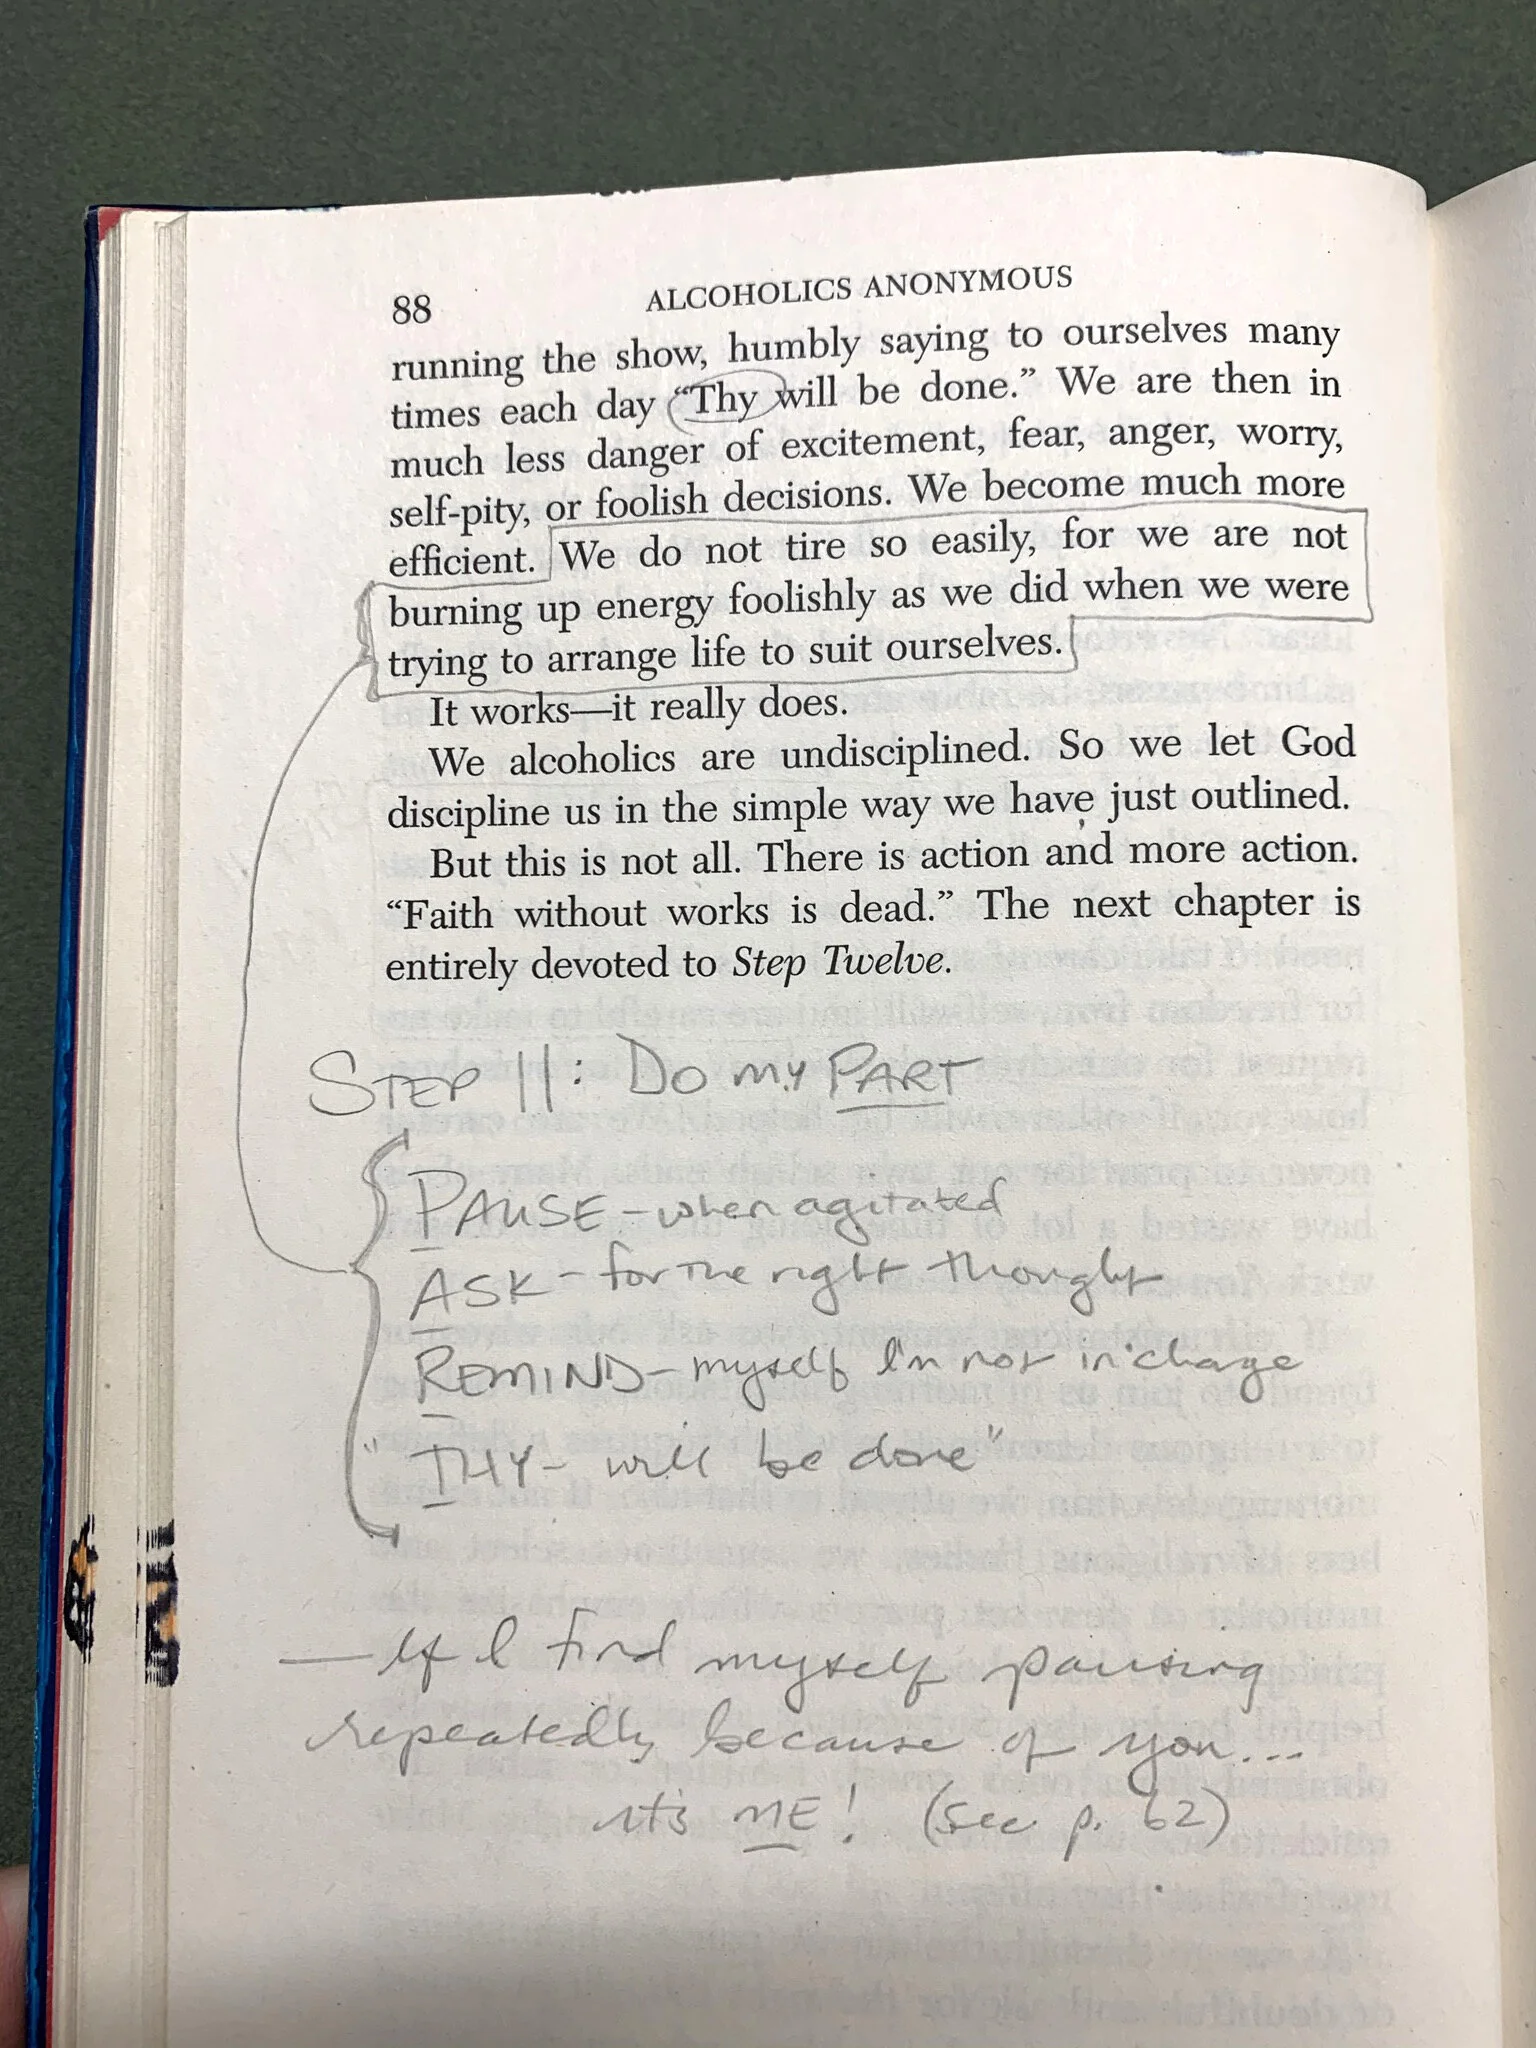 88
ALCOHOLICS ANONYMOUS
running the show, humbly saying to ourselves many
times each day “Thy will be done.” We are then in
much less danger of excitement, fear, anger, worry,
self-pity, or foolish decisions. We become much more
efficient. We do not tire so easily, for we are not
burning up energy foolishly as we did when we were
trying to arrange life to suit ourselves.
It works—it really does.
We alcoholics are undisciplined. So we let God
discipline us in the simple way we have just outlined.
But this is not all. There is action and more action.
“Faith without works is dead.” The next chapter is
entirely devoted to Step Twelve.
STEP 11: DO MY PART
PAUSE - when agitated
ASK - for the right thought
REMIND - myself I'm not in charge
"THY - will be done"
— If I find myself pausing
repeatedly because of you...
it's ME! (see p. 62)